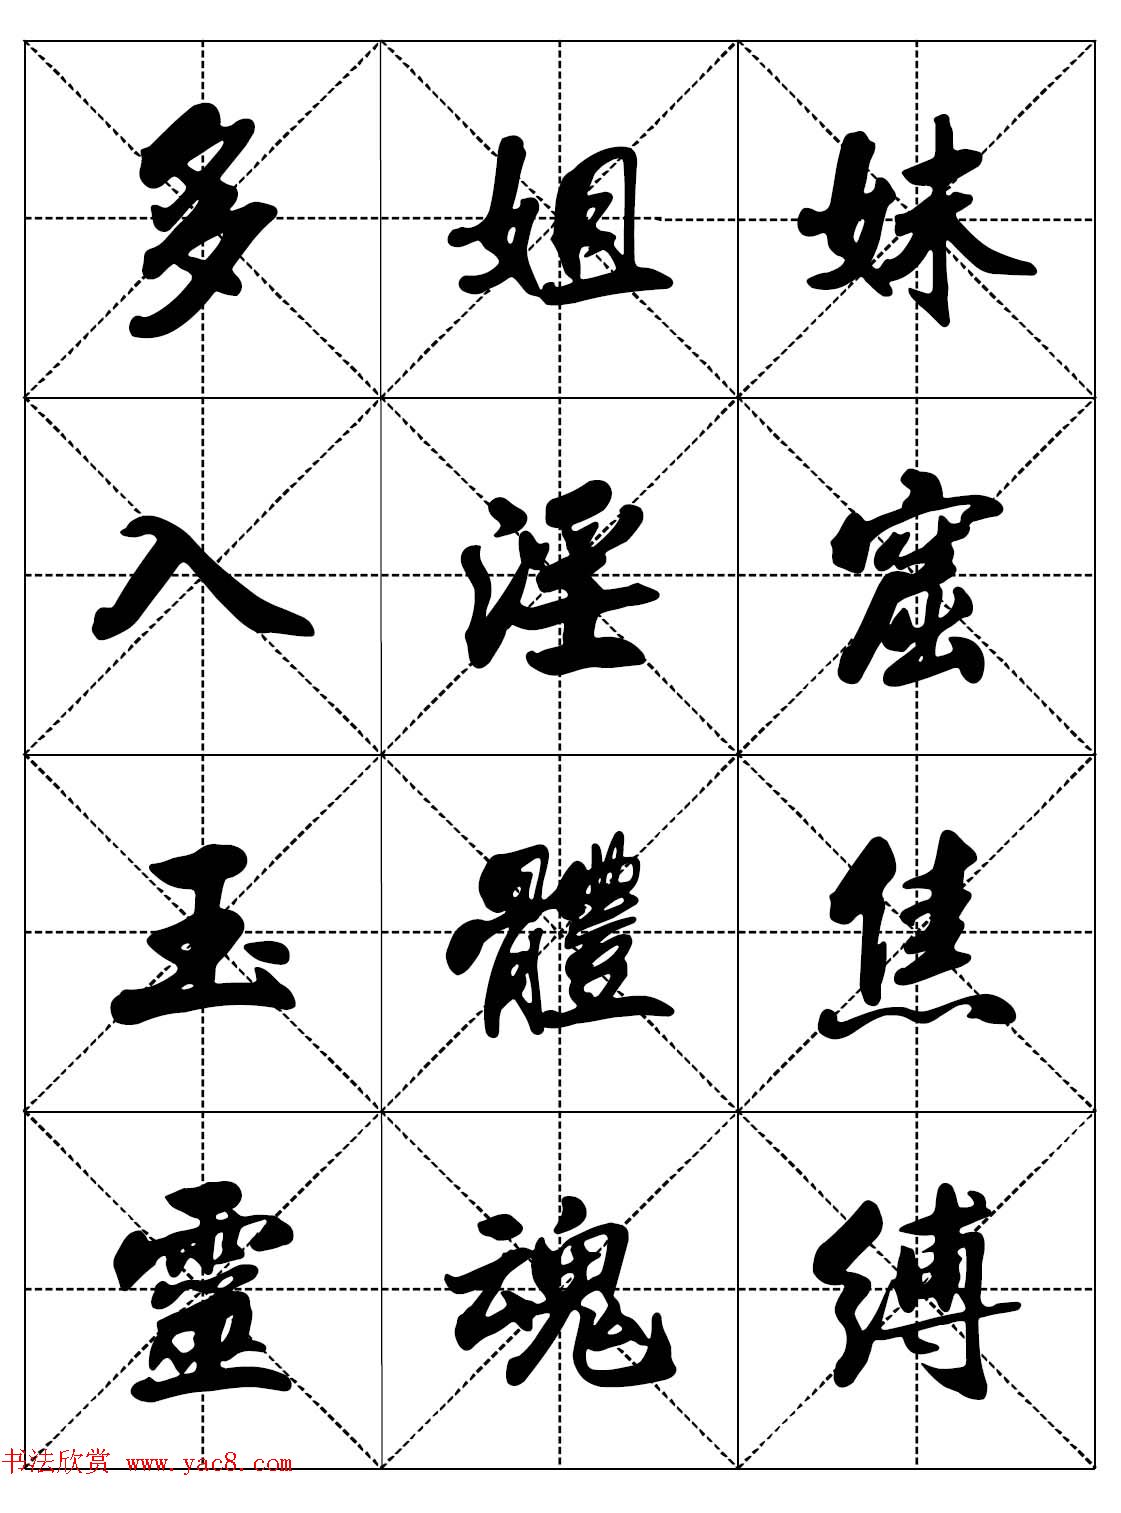 多姐妹
入淫窟
玉體焦
靈魂縛
书法欣赏 www.yac8.com